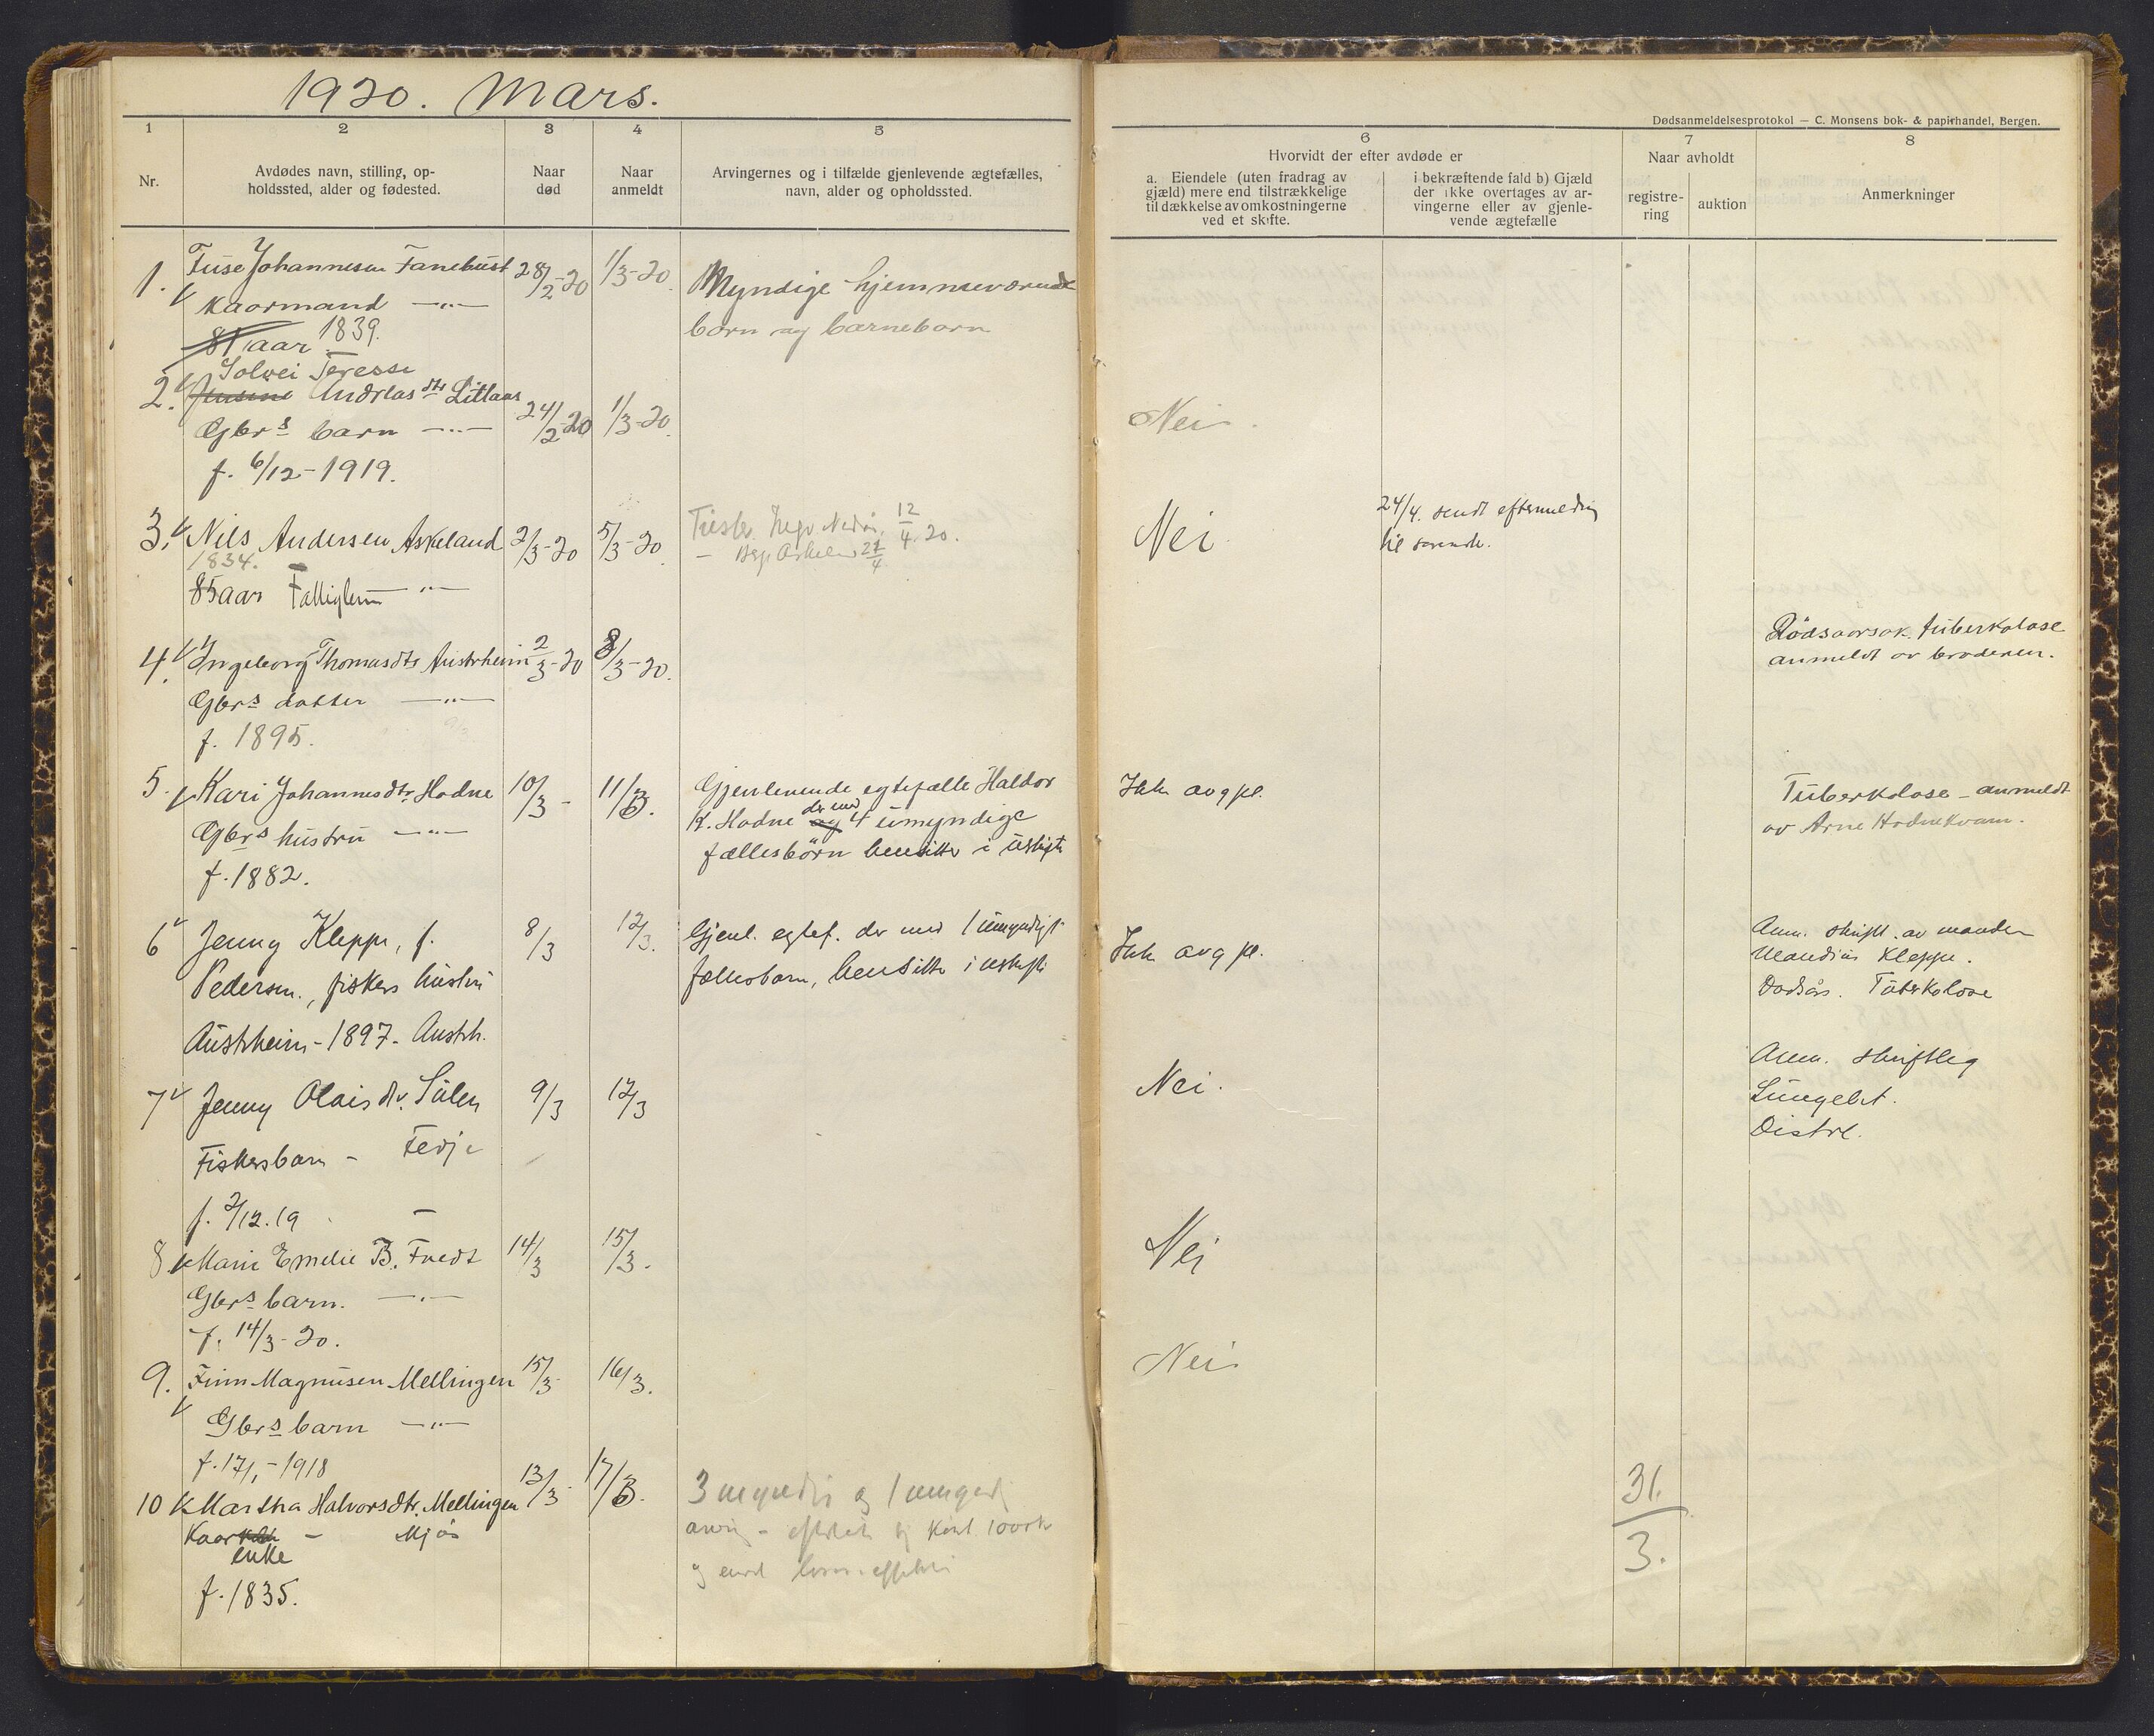 1920. Mars.
Dødsanmeldelsesprotokol — C. Monsens bok- & papirhandel, Bergen.
1
2
3
4
5
6
7
8
Nr.
Avdødes navn, stilling, op-
holdssted, alder og fødested.
Naar
død
Naar
anmeldt
Arvingernes og i tilfælde gjenlevende ægtefælles,
navn, alder og opholdssted.
Hvorvidt der efter avdøde er
a. Eiendele (uten fradrag av
gjæld) mere end tilstrækkelige
til dækkelse av omkostningerne
ved et skifte.
i bekræftende fald b) Gjæld
der ikke overtages av ar-
vingerne eller av gjenle-
vende ægtefælle
Naar avholdt
registre-
ring
auktion
Anmerkninger
1. Johannesen Fanebust 28/2-20 1/3-20. Myndige hjemmeværende
Kaarmand —"—
børn og barnebørn
81 aar 1839.
Solvei Teresse
2. Andreasdtr Litlaas 24/2-20 1/3-20. Nei.
Gbrs barn —"—
f. 6/12-1919.
3. Nils Andersen Askeland 2/3-20 5/3-20. 12/4.20. Nei 24/4. sendt
1834.
til
85 aar Fattiglem —"—
4. Ingeborg Thomasdtr Austrheim 2/3-20 8/3-20. Dødsaarsak tuberkolose
anmeldt av broderen.
Gbrs datter —"—
f. 1895.
5. Kari Johannesdtr. Hodne 10/3- 11/3. Gjenlevende egtefælle Haldor Ikke avgpl. Tuberkolose - anmeldt
K. Hodne der med og 4 umyndige
av Arne Hodnekvam.
Gbrs hustru —"—
fællesbörn hensitter i uskifte
f. 1882.
6 Jenny Kleppe, f. 8/3 12/3. Gjenl. egtef. der med 1 umyndigt Ikke avgpl. Anm. skriftl. av manden
Kleppe.
Pedersen, fiskers hustru
fællesbarn, hensitter i uskifte
Dødsårs. Tuberkolose
Austrheim - 1897 - Austrh.
7 Jenny Olaisdtr. Sulen 9/3 12/3 Nei. Anm. skriftleg
Lungebet.
Fiskersbarn - Fedje
Distrl.
f. 2/12.19 —
8 Marie Emelie B. 14/3 15/3. Nei
Gbrs barn. —"—
f. 14/3-20.
9. Finn Magnusen Mellingen 15/3 16/3. Nei
Gbrs barn —"—
f. 17/1-1918
10 Martha Halvorsdtr. Mellingen 13/3- 17/3. 3 myndige og 1 umyndig
Kaar enke
f. 1835.
31.
3.